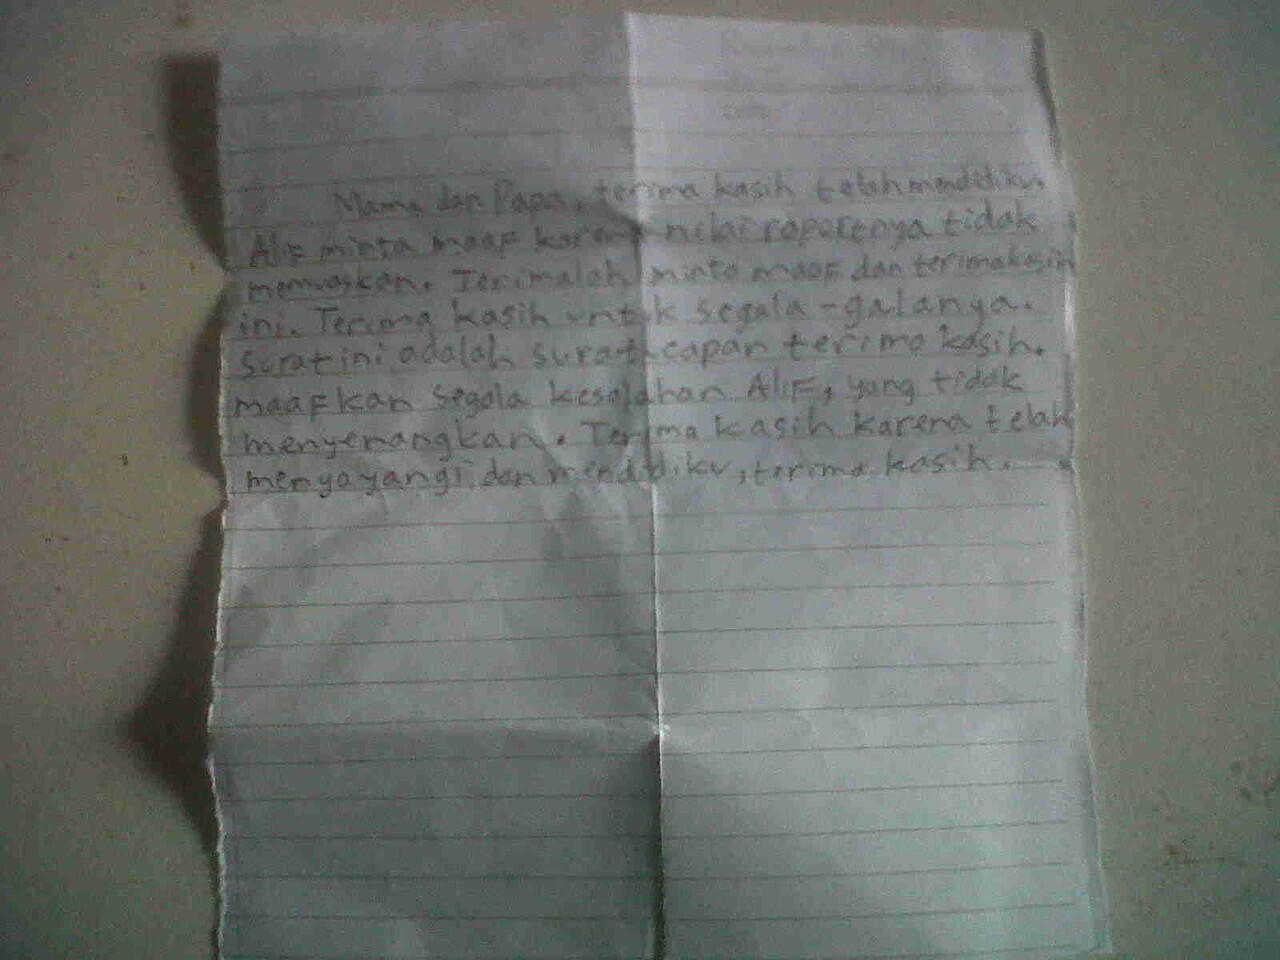 Mama dan Papa, terima kasih telah mendidiku.
Alif minta maaf karena nilai raportnya tidak
memuaskan. Terimalah minta maaf dan terimakasih
ini. Terima kasih untuk segala-galanya.
Surat ini adalah surat ucapan terima kasih.
maafkan segala kesalahan Alif, yang tidak
menyenangkan. Terima kasih karena telah
menyayangi dan mendidiku, terima kasih.